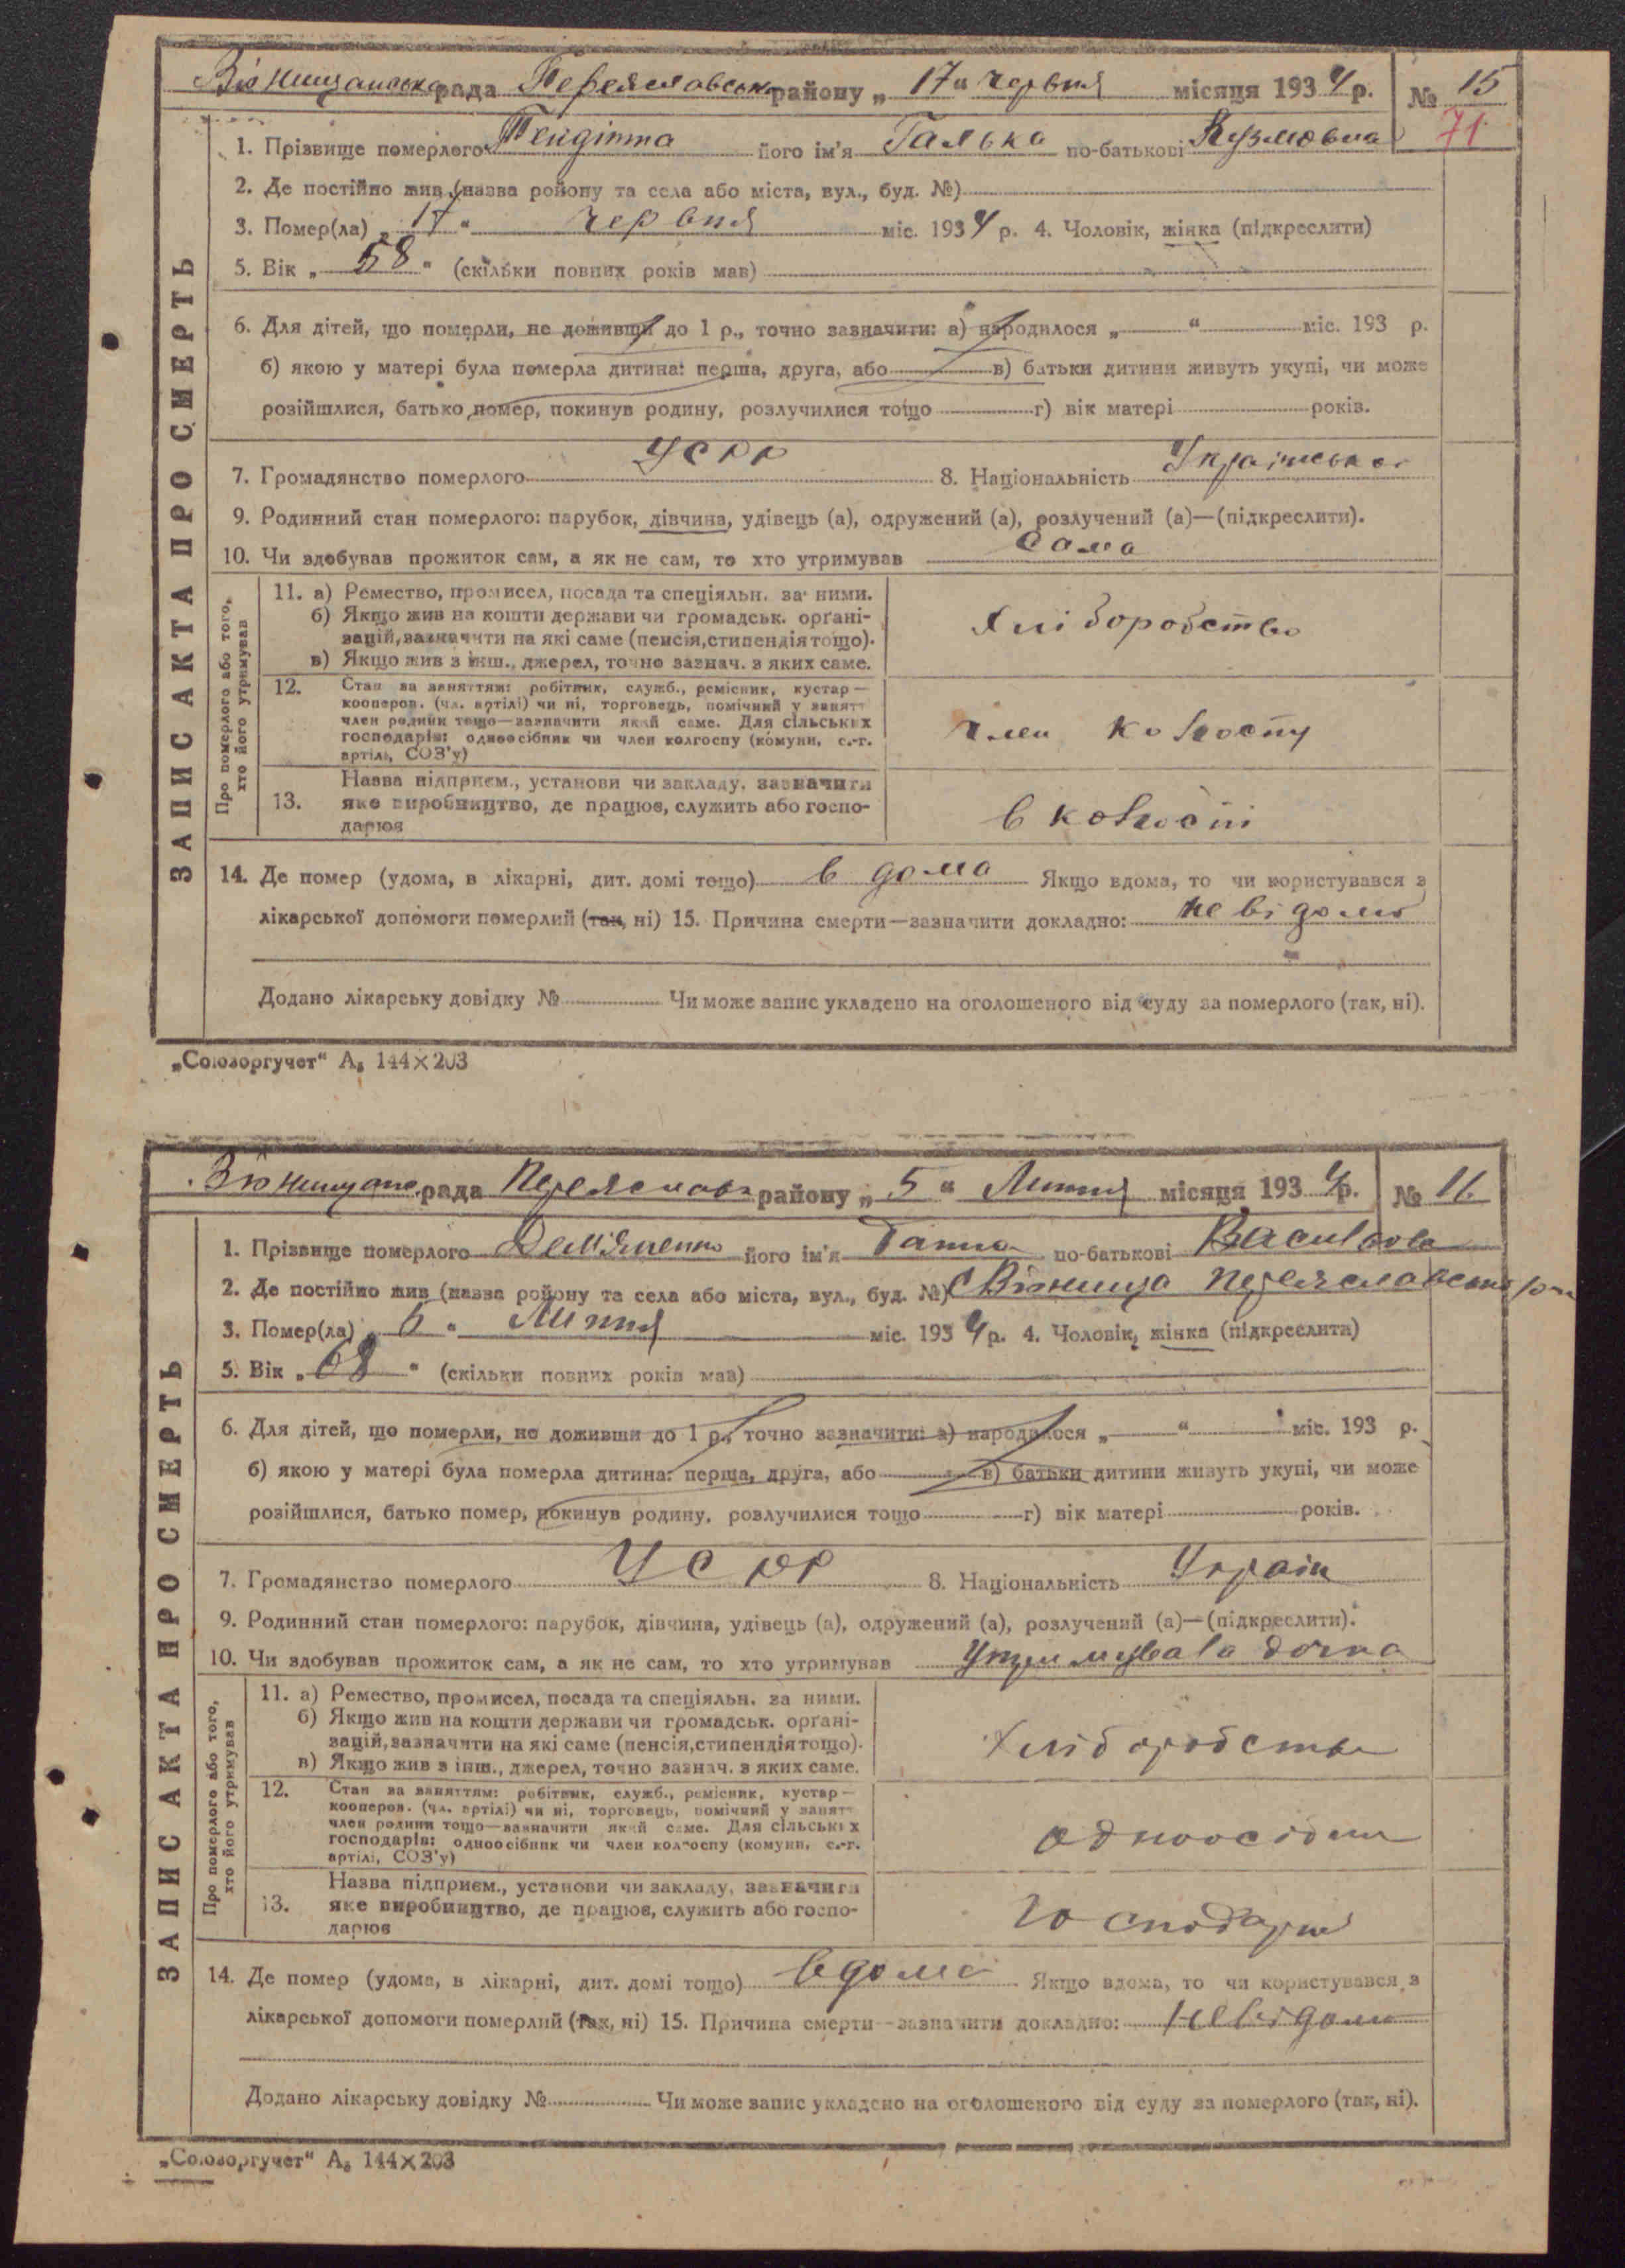 Вюнищанська рада Переяславськ району „ 17 “ червня місяця 1934 р. № 15
71
1. Прізвище померлого Тендітна його ім'я Галька по-батькові Кузмовна
2. Де постійно жив (назва ройону та села або міста, вул., буд. №)
3. Помер(ла) „ 17 “ червня міс. 1934 р. 4. Чоловік, жінка (підкреслити)
5. Вік „ 58 “ (скільки повних років мав)
6. Для дітей, що померли, не доживши до 1 р., точно зазначити: а) народилося „ “ міс. 193 р.
б) якою у матері була померла дитина: перша, друга, або в) батьки дитини живуть укупі, чи може
розійшлися, батько помер, покинув родину, розлучилися тощо г) вік матері років.
7. Громадянство померлого УСРР 8. Національність Українська
9. Родинний стан померлого: парубок, дівчина, удівець (а), одружений (а), розлучений (а)—(підкреслити).
10. Чи здобував прожиток сам, а як не сам, то хто утримував Сама
ЗАПИС АКТА ПРО СМЕРТЬ
Про померлого або того,
хто його утримував
11. а) Ремество, промисел, посада та спеціяльн. за ними.
б) Якщо жив на кошти держави чи громадськ. орґані-
зацій, зазначити на які саме (пенсія, стипендія тощо).
в) Якщо жив з інш., джерел, точно зазнач. з яких саме.
Хліборобство
12. Стан за заняттям: робітник, служб., ремісник, кустар—
кооперов. (чл. артілі) чи ні, торговець, помічний у занят-
член родини тощо—зазначити який саме. Для сільських
господарів: одноосібник чи член колгоспу (комуни, с.-г.
артілі, СОЗ'у)
член колгоспу
13. Назва підприєм., установи чи закладу, зазначити
яке виробництво, де працює, служить або госпо-
дарює
в колгоспі
14. Де помер (удома, в лікарні, дит. домі тощо) в дома Якщо вдома, то чи користувався з
лікарської допомоги померлий (так, ні) 15. Причина смерти—зазначити докладно: не відомо
Додано лікарську довідку № Чи може запис укладено на оголошеного від суду за померлого (так, ні).
„Союзоргучет“ А₅ 144×203
Вюнищанс рада Переяславс району „ 5 “ Липня місяця 1934 р. № 16
1. Прізвище померлого Дем'яненко його ім'я Ганна по-батькові Василовна
2. Де постійно жив (назва ройону та села або міста, вул., буд. №) с Вюнища Переяславськ р-н
3. Помер(ла) „ 5 “ Липня міс. 1934 р. 4. Чоловік, жінка (підкреслити)
5. Вік „ 68 “ (скільки повних років мав)
6. Для дітей, що померли, не доживши до 1 р., точно зазначити: а) народилося „ “ міс. 193 р.
б) якою у матері була померла дитина: перша, друга, або в) батьки дитини живуть укупі, чи може
розійшлися, батько помер, покинув родину, розлучилися тощо г) вік матері років.
7. Громадянство померлого УСРР 8. Національність Україн
9. Родинний стан померлого: парубок, дівчина, удівець (а), одружений (а), розлучений (а)—(підкреслити).
10. Чи здобував прожиток сам, а як не сам, то хто утримував Утримувала дочка
ЗАПИС АКТА ПРО СМЕРТЬ
Про померлого або того,
хто його утримував
11. а) Ремество, промисел, посада та спеціяльн. за ними.
б) Якщо жив на кошти держави чи громадськ. орґані-
зацій, зазначити на які саме (пенсія, стипендія тощо).
в) Якщо жив з інш., джерел, точно зазнач. з яких саме.
Хліборобство
12. Стан за заняттям: робітник, служб., ремісник, кустар—
кооперов. (чл. артілі) чи ні, торговець, помічний у занят-
член родини тощо—зазначити який саме. Для сільських
господарів: одноосібник чи член колгоспу (комуни, с.-г.
артілі, СОЗ'у)
одноосібни
13. Назва підприєм., установи чи закладу, зазначити
яке виробництво, де працює, служить або госпо-
дарює
господарці
14. Де помер (удома, в лікарні, дит. домі тощо) вдома Якщо вдома, то чи користувався з
лікарської допомоги померлий (так, ні) 15. Причина смерти—зазначити докладно: Невідомо
Додано лікарську довідку № Чи може запис укладено на оголошеного від суду за померлого (так, ні).
„Союзоргучет“ А₅ 144×203